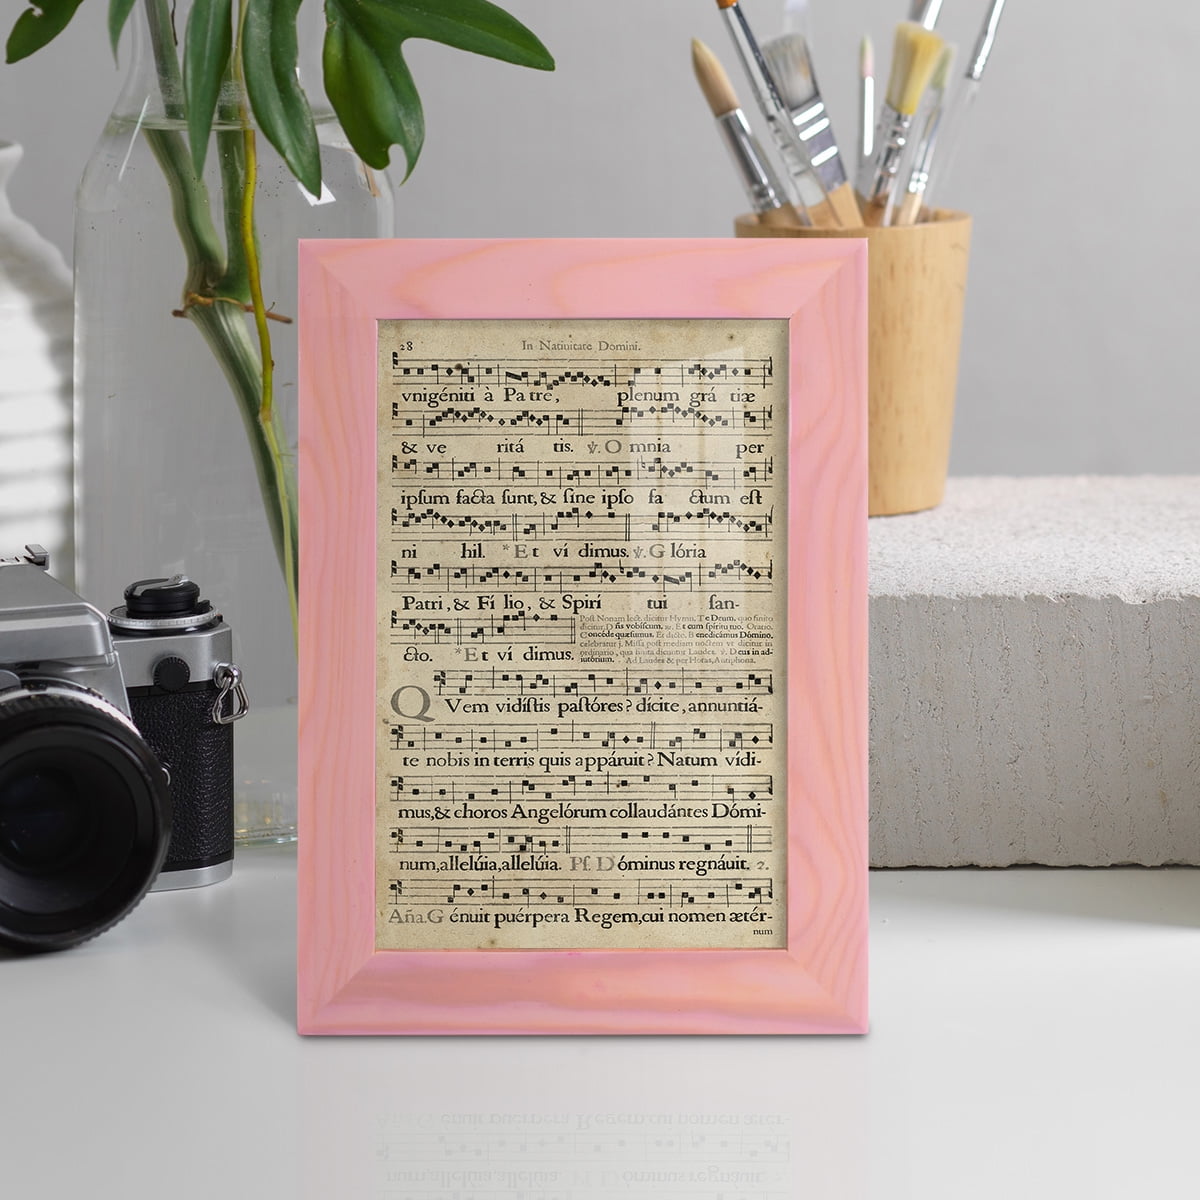 28 In Natiuitate Domini.
vnigéniti à Pa tre, plenum grá tiæ
& ve ritá tis. ℣. O mnia per
ipſum facta ſunt, & ſine ipſo fa ctum eſt
ni hil. *Et ví dimus. ℣. G lória
Patri, & Fí lio, & Spirí tui ſan-
cto. *Et ví dimus.
Poſt Nonam lect. dicitur Hymn. Te Deum, quo finito
dicitur, D ñs vobiſcum. ℟. Et cum ſpíritu tuo. Oratio.
Concéde quæſumus. Et dicto, B enedicámus Dómino,
celebratur j. Miſſa poſt mediam noctem vt dicitur in
ordinario, qua finita dicuntur Laudes. ℣. D eus in ad-
iutórium. Ad Laudes & per Horas, Antiphona.
QVem vidíſtis paſtóres? dícite, annuntiá-
te nobis in terris quis appáruit? Natum vídi-
mus, & choros Angelórum collaudántes Dómi-
num, allelúia, allelúia. Pſ. D óminus regnáuit. 2.
Aña. G énuit puérpera Regem, cui nomen ætér-
num